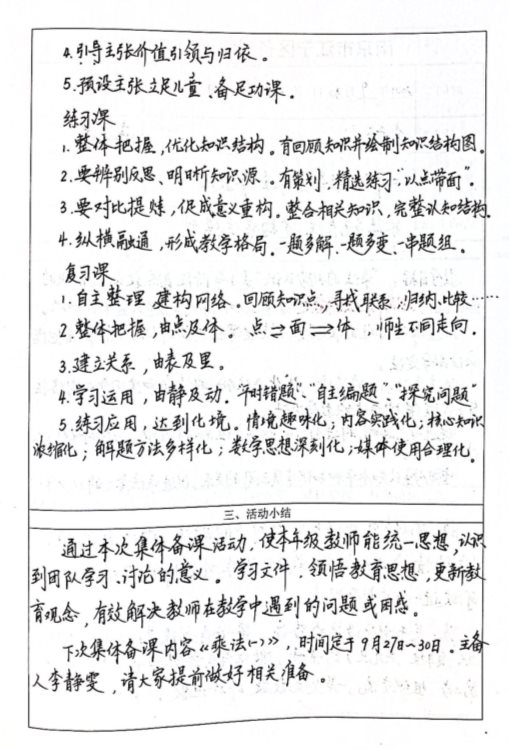 4.引导主张价值引领与归依。
5.预设主张立足儿童、备足功课。
练习课
1.整体把握,优化知识结构。有回顾知识并绘制知识结构图。
2.要辨别反思、明晰知识源。有策划,精选练习“以点带面”。
3.要对比提炼,促成意义重构。整合相关知识,完整认知结构。
4.纵横融通,形成教学格局。一题多解、一题多变、一串题组。
复习课
1.自主整理 建构网络。回顾知识点,寻找联系,归纳、比较……
2.整体把握,由点及体。点⇄面⇄体,师生不同走向。
3.建立关系,由表及里。
4.学习运用,由静及动。“平时错题”、“自主编题”、“探究问题”
5.练习应用,达到化境。情境趣味化;内容实践化;核心知识
浓缩化;解题方法多样化;数学思想深刻化;媒体使用合理化。
三、活动小结
通过本次集体备课活动,使本年级教师能统一思想,认识
到团队学习、讨论的意义。学习文件,领悟教育思想,更新教
育观念,有效解决教师在教学中遇到的问题或困惑。
下次集体备课内容《乘法(一)》,时间定于9月27日~30日。主备
人李静雯,请大家提前做好相关准备。